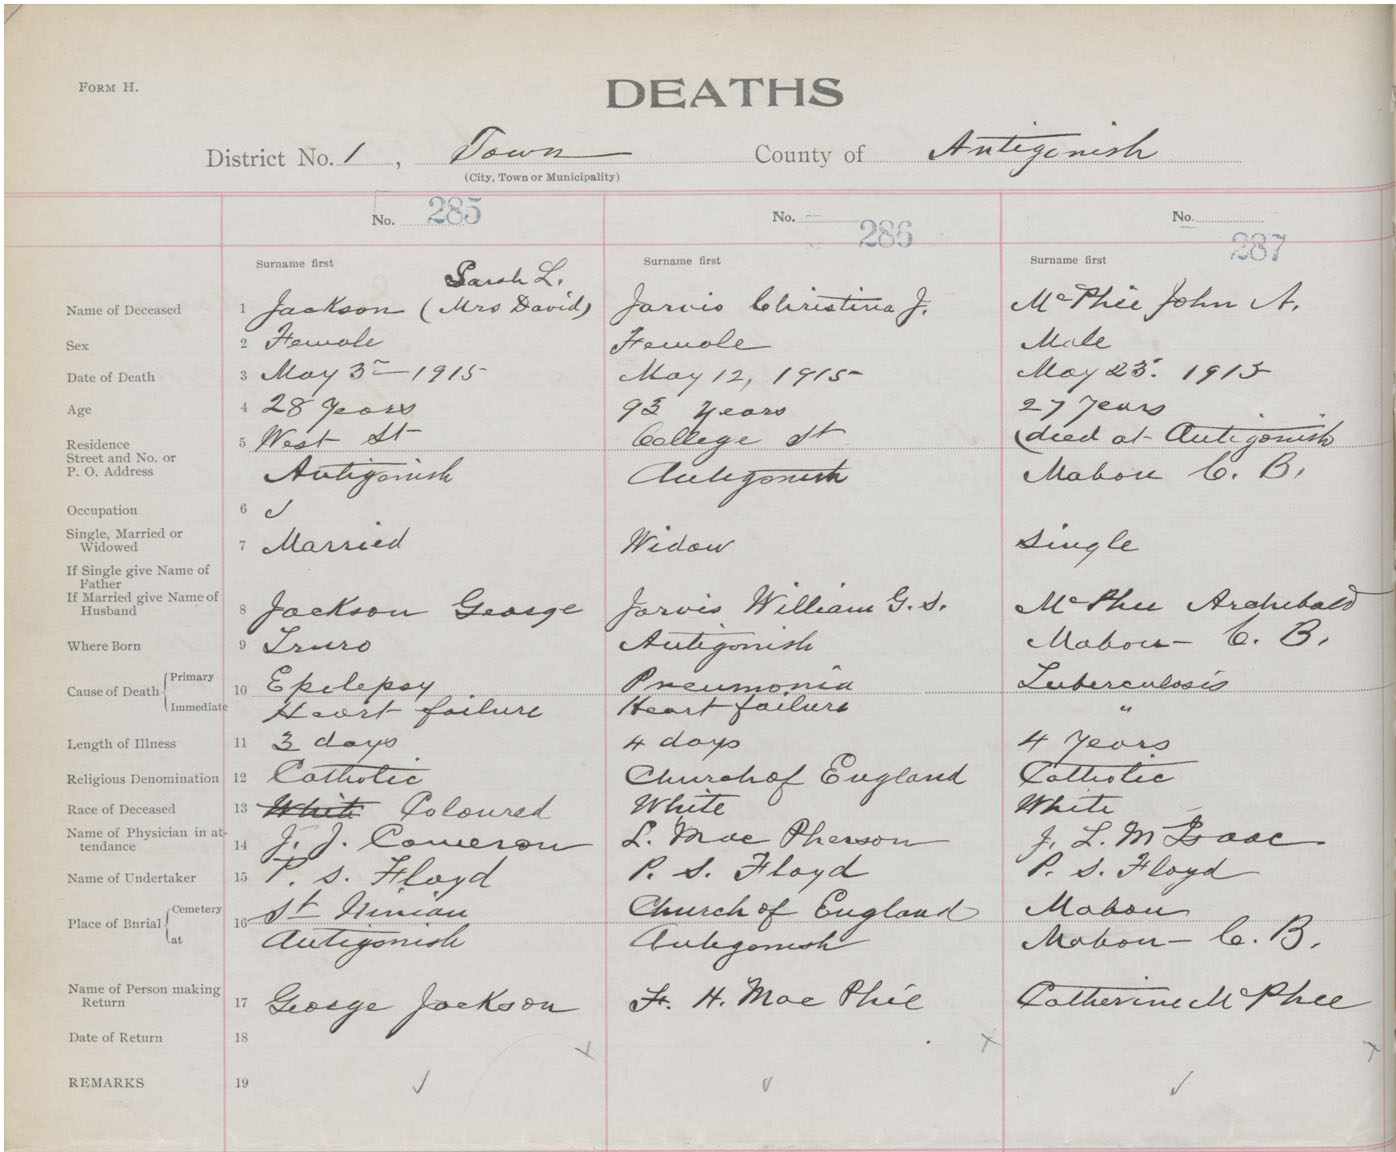 FORM H.
DEATHS
District No. 1, Town County of Antigonish
(City, Town or Municipality)
No. 285 No. 286 No. 287
Surname first Surname first Surname first
Sarah L.
Name of Deceased 1 Jackson (Mrs David) Jarvis Christina J. McPhee John A.
Sex 2 Female Female Male
Date of Death 3 May 3rd 1915 May 12, 1915 May 23. 1915
Age 4 28 Years 93 Years 27 Years
Residence 5 West St College St (died at Antigonish
Street and No. or
P. O. Address Antigonish Antigonish Mabou C. B.
Occupation 6
Single, Married or
Widowed 7 Married Widow Single
If Single give Name of
Father
If Married give Name of
Husband 8 Jackson George Jarvis William G. S. McPhee Archibald
Where Born 9 Truro Antigonish Mabou - C. B.
Cause of Death Primary 10 Epilepsy Pneumonia Tuberculosis
Immediate Heart failure Heart failure "
Length of Illness 11 3 days 4 days 4 Years
Religious Denomination 12 Catholic Church of England Catholic
Race of Deceased 13 White Coloured White White
Name of Physician in at-
tendance 14 J. J. Cameron L. MacPherson J. L. McIsaac
Name of Undertaker 15 P. S. Floyd P. S. Floyd P. S. Floyd
Place of Burial Cemetery 16 St Ninian Church of England Mabou
at Antigonish Antigonish Mabou - C. B.
Name of Person making
Return 17 George Jackson F. H. MacPhie Catherine McPhee
Date of Return 18
REMARKS 19